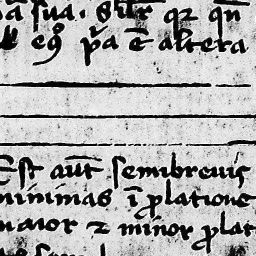 sua. qꝫ qn̄
eꝯ p̄a ē altera
Est aūt semibreuis
minimas ī ꝓlatione
maior ⁊ minor ꝓlat